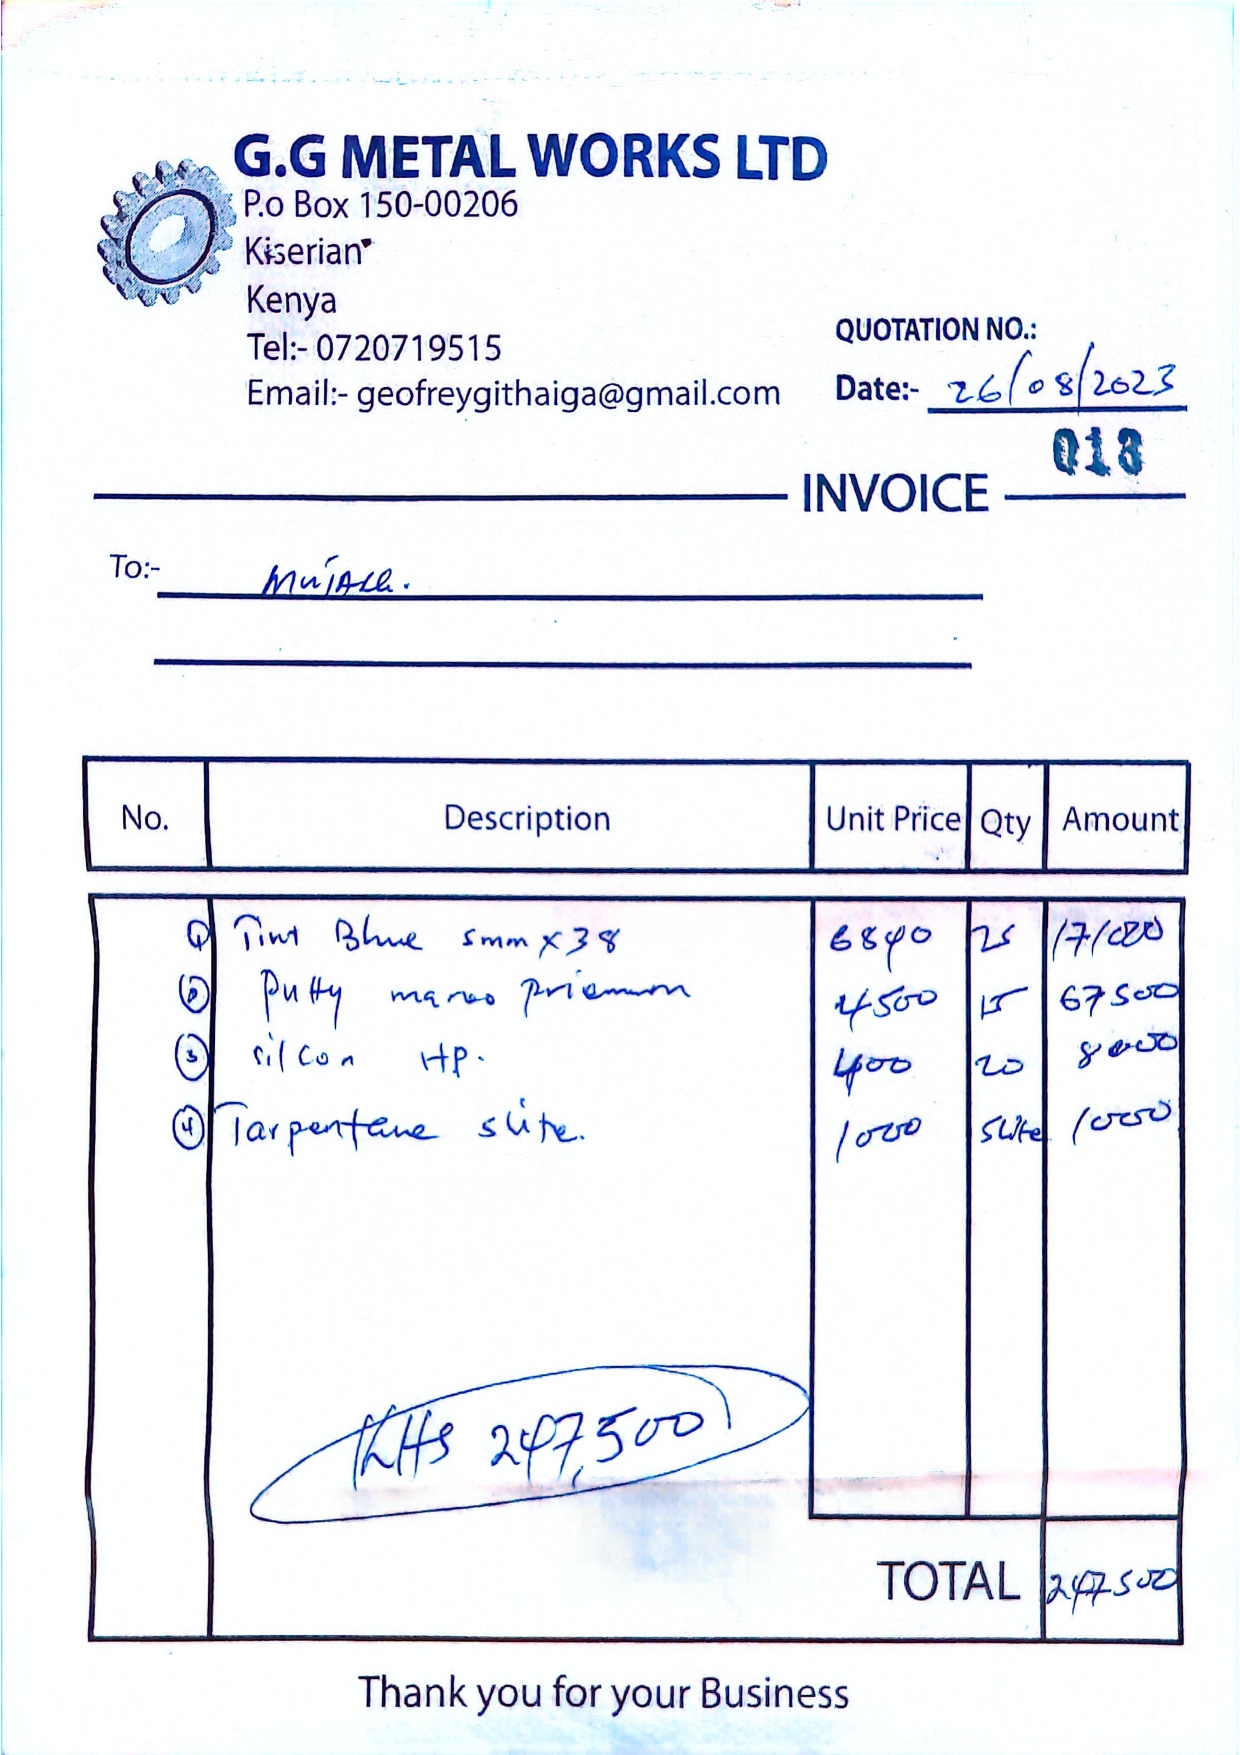 G.G METAL WORKS LTD
P.o Box 150-00206
Kiserian
Kenya
Tel:- 0720719515
Email:- geofreygithaiga@gmail.com
QUOTATION NO.:
Date:- 26/08/2023
018
INVOICE
To:-
No. Description Unit Price Qty Amount
1 Tint Blue 5mm x 38 6840 25 171000
2 Putty 4500 15 67500
3 silcon HP. 400 20 8000
4 Tarpentane 5lite. 1000 5lite 1000
KHS 247,500
TOTAL 247500
Thank you for your Business